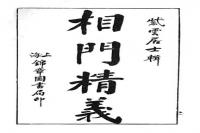 紫雲居士輯
相門精義
上海錦章圖書局印